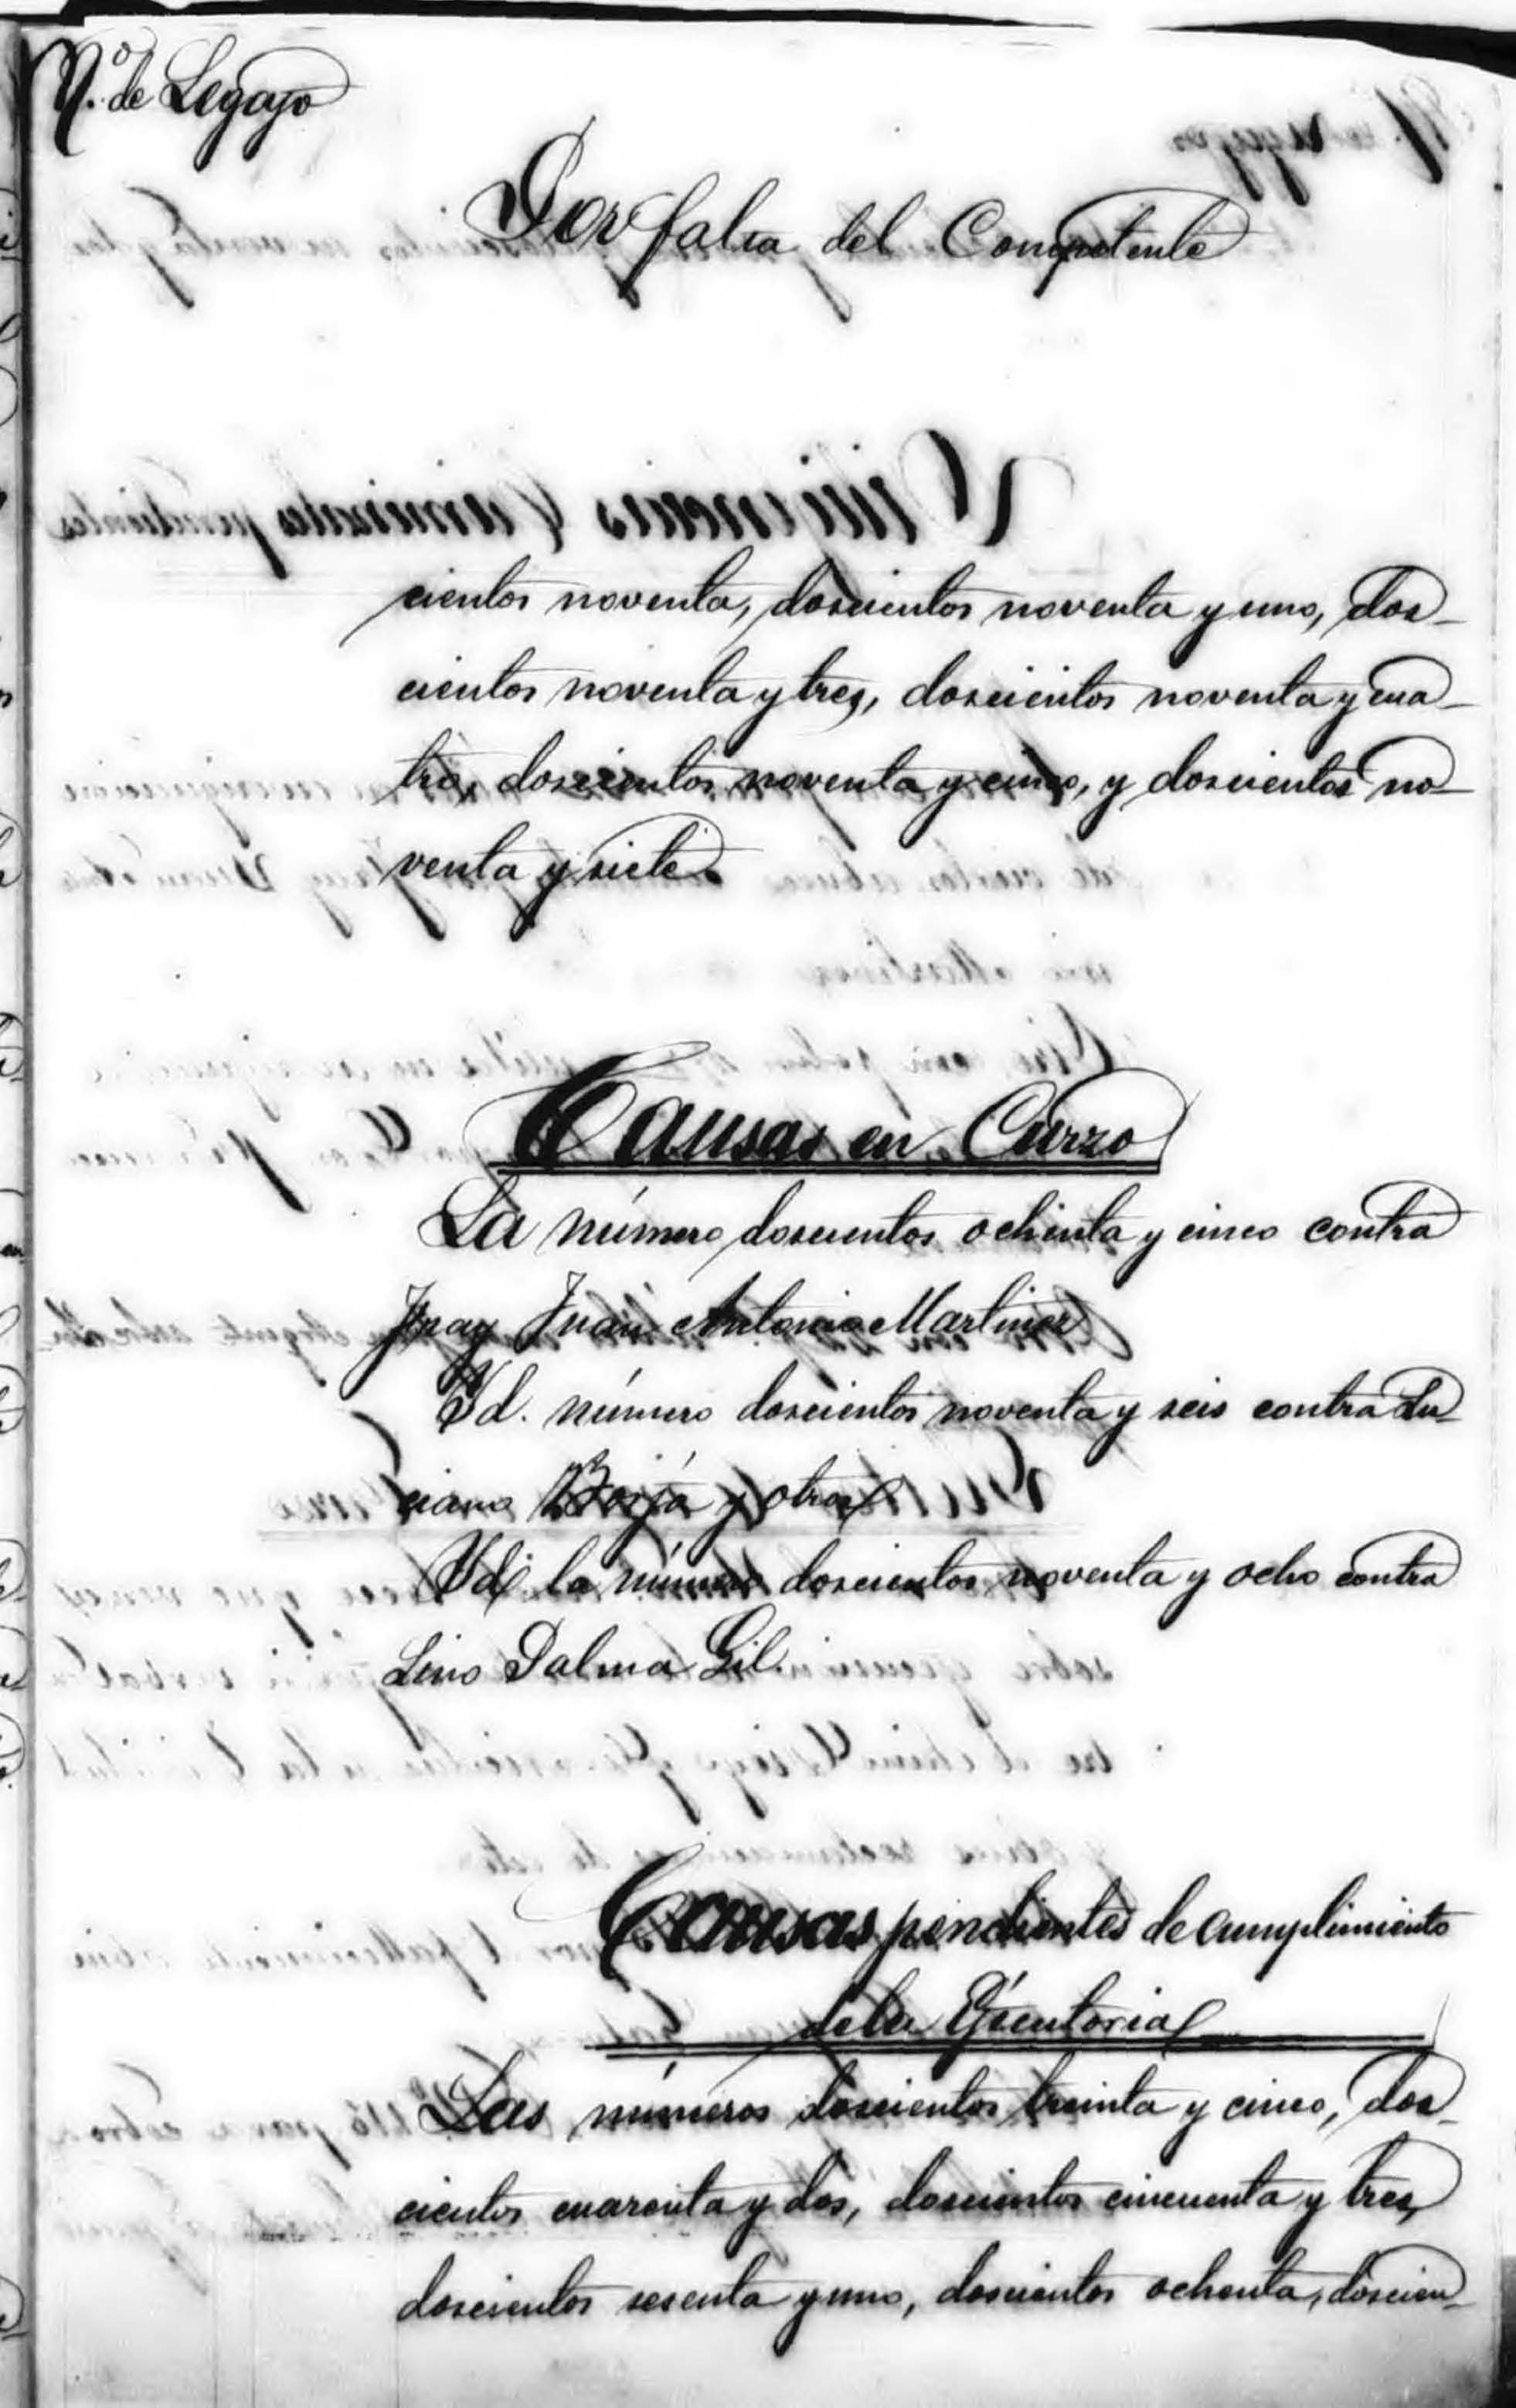 N.º de Legajo
Por falta del Competente
cientos noventa, doscientos noventa y uno, dos-
cientos noventa y tres, doscientos noventa y cua-
tro, doscientos noventa y cinco, y doscientos no-
venta y siete.
Causas en Curzo
La número doscientos ochinta y cinco contra
Fray Juan Antonio Martinez
Yd. número doscientos noventa y seis contra Lu-
ciano Borja y otros
Yd. la número doscientos noventa y ocho contra
Lino Palma Gil.
Causas pendientes de cumplimiento
de la Ejecutoria
Las números doscientos treinta y cinco, dos-
cientos cuarenta y dos, doscientos cincuenta y tres,
doscientos sesenta y uno, doscientos ochenta, doscien-